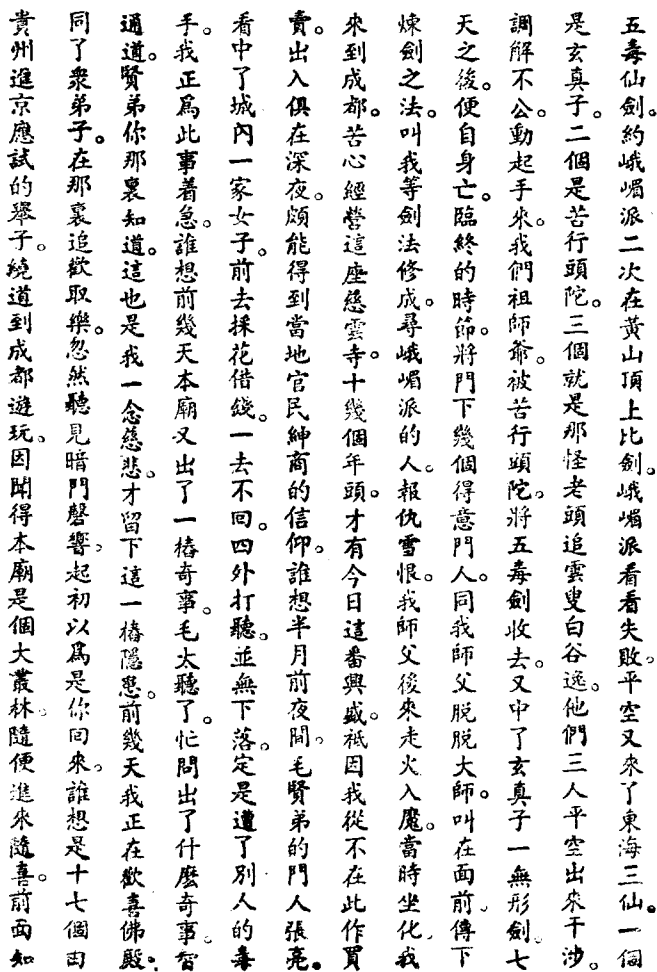 五毒仙劍。約峨嵋派二次在黃山頂上比劍。峨嵋派看看失敗。平空又來了東海三仙。一個
是玄真子。二個是苦行頭陀。三個就是那怪老頭追雲叟白谷逸。他們三人平空出來干涉。
調解不公。動起手來。我們祖師爺。被苦行頭陀。將五毒劍收去。又中了玄真子一無形劍。七
天之後。便自身亡。臨終的時節。將門下幾個得意門人。同我師父脫脫大師。叫在面前。傳下
煉劍之法。叫我等劍法修成。尋峨嵋派的人。報仇雪恨。我師父後來走火入魔。當時坐化。我
來到成都。苦心經營這座慈雲寺。十幾個年頭。才有今日這番興盛。祗因我從不在此作買
賣。出入俱在深夜。頗能得到當地官民紳商的信仰。誰想半月前夜間。毛賢弟的門人張亮。
看中了城內一家女子。前去採花借錢。一去不回。四外打聽。並無下落。定是遭了別人的毒
手。我正爲此事着急。誰想前幾天本廟又出了一樁奇事。毛太聽了。忙問出了什麼奇事。智
通道。賢弟你那裏知道。這也是我一念慈悲。才留下這一樁隱患。前幾天我正在歡喜佛殿。
同了衆弟子。在那裏追歡取樂。忽然聽見暗門磬響。起初以爲是你回來。誰想是十七個由
貴州進京應試的舉子。繞道到成都遊玩。因聞得本廟是個大叢林。隨便進來隨喜。前面知